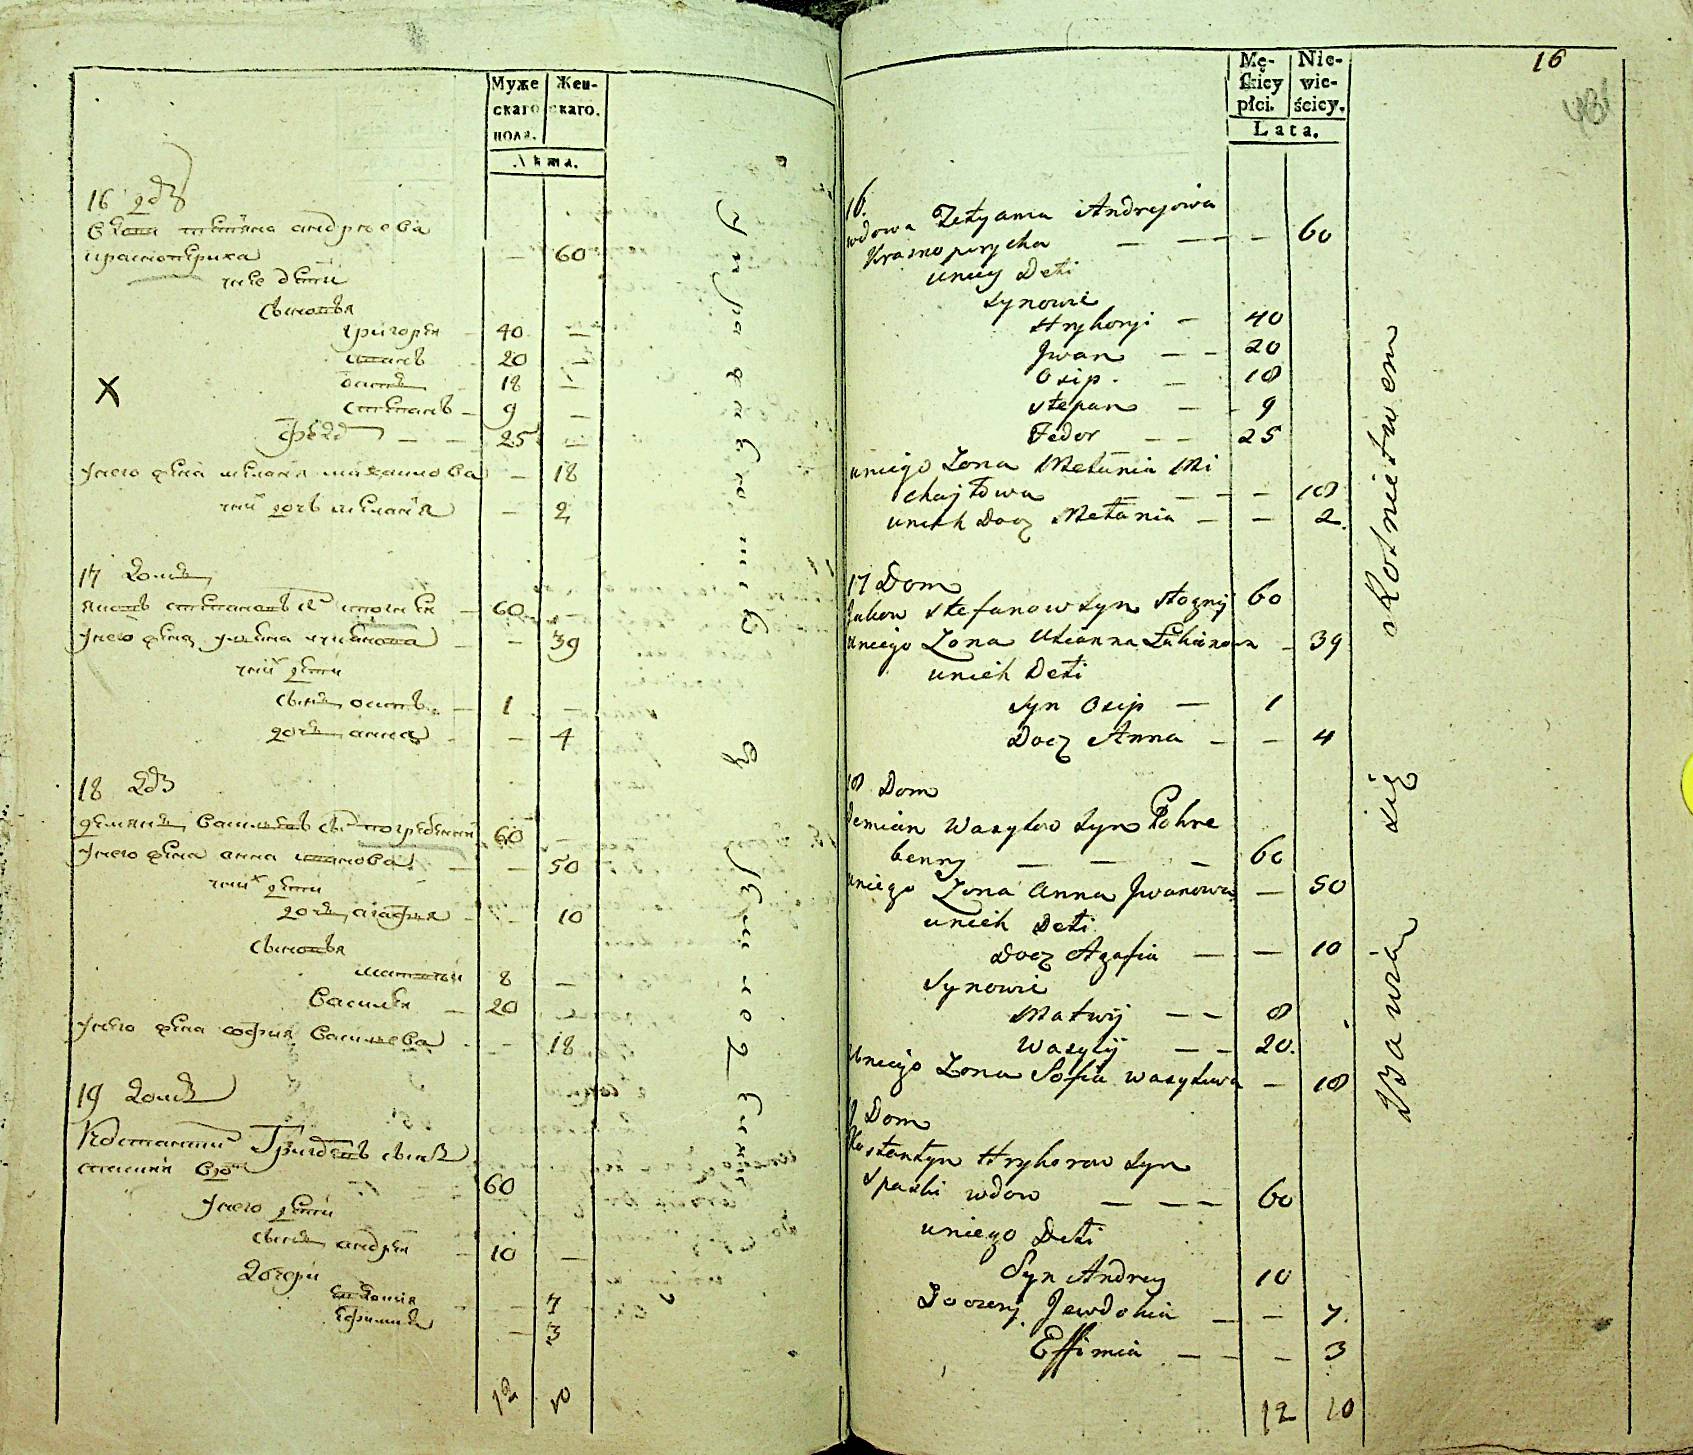 Муже скаго пола.
Жен- скаго.
Лѣта.
16 дв
вдова татияна андрѣева
краснопериха
60
унее дети
сыновья
григорей 40
иванъ 20
осипъ 18
степанъ 9
федоръ 25
унего жена мелания михайлова 18
уних дочь мелания 2
17 домъ
яковъ степановъ сн стогней 60
унего жена улияна лукянова 39
уних дети
сынъ осипъ 1
дочь анна 4
18 дв
демянъ васильевъ сн погребений 60
унего жена анна иванова 50
уних дети
дочь агафия 10
сыновья
матвей 8
василей 20
унего жена софия васильева 18
19 домъ
Костантинъ Григоревъ сынъ
вдов
60
унего дети
сынъ андрей 10
дочери
евдокия 7
ефимия 3
12 10
упражняются
16
Mę- skiey płci.
Nie- wie- ściey.
Lata.
16.
wdowa Tetyana Andrejowa
Krasnoperycha — — — 60
uniey Deti
Synowie
Hryhoryi — 40
Jwan — — 20
Osip. — 18
Stepan — — 9
Fedor — — 25
uniego Zona Melania Mi
chajłowa — — — 18
unich Docz Melania — — 2.
17 Dom
Jakow Stefanow Syn Stogny 60
uniego Zona Ulianna Łukianowa — 39
unich Deti
Syn Osip — 1
Docz Anna — — 4
18 Dom
Demian Wasylow Syn Pohre
benny — — — 60
uniego Zona Anna Jwanowa — 50
unich Deti
Docz Agafia — — 10
Synowie
Matwiy — — 8
Wasylÿ — — 20.
Uniego Zona Sofia Wasylowa — 18
19 Dom
Kostantyn Hryhorow Syn
Spaski wdow — — — 60
uniego Deti
Syn Andrey 10
Doczery Jewdokia — — 7.
Effimia — — — 3
12 10
Bawią się Rolnictwem